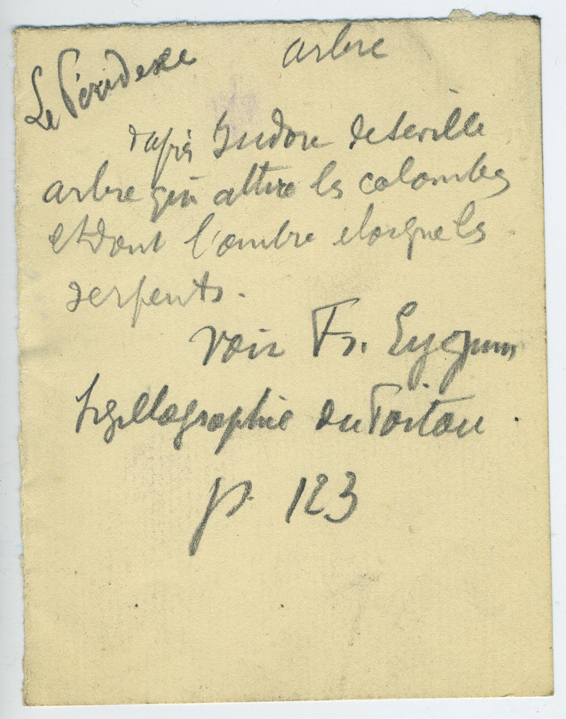 Le Péridexe arbre
d'après Isidore de Séville
arbre qui attire les colombes
et dont l'ombre eloigne les
serpents.
voir Fr. Eygun
Sigillographie du Poitou.
p. 123